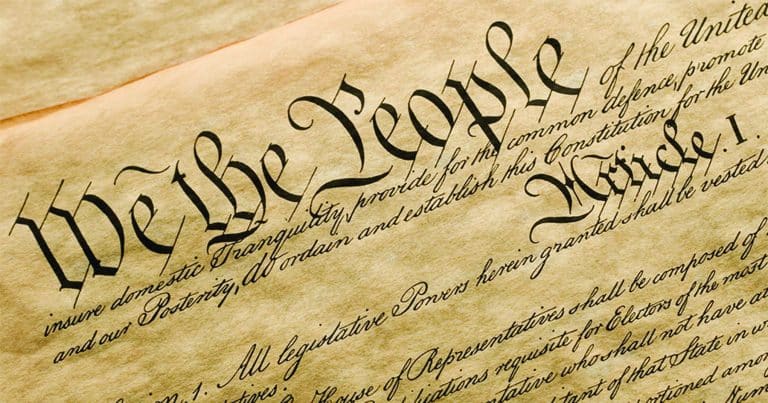 We the People of the United
insure domestic Tranquility, provide for the common defence, promote
and our Posterity, do ordain and establish this Constitution for the Un
Article. I.
on. 1. All legislative Powers herein granted shall be vested
tives.
House of Representatives shall be composed of
ications requisite for Electors of the most
ntative who shall not have at
tant of that State in w
rtioned among
Num